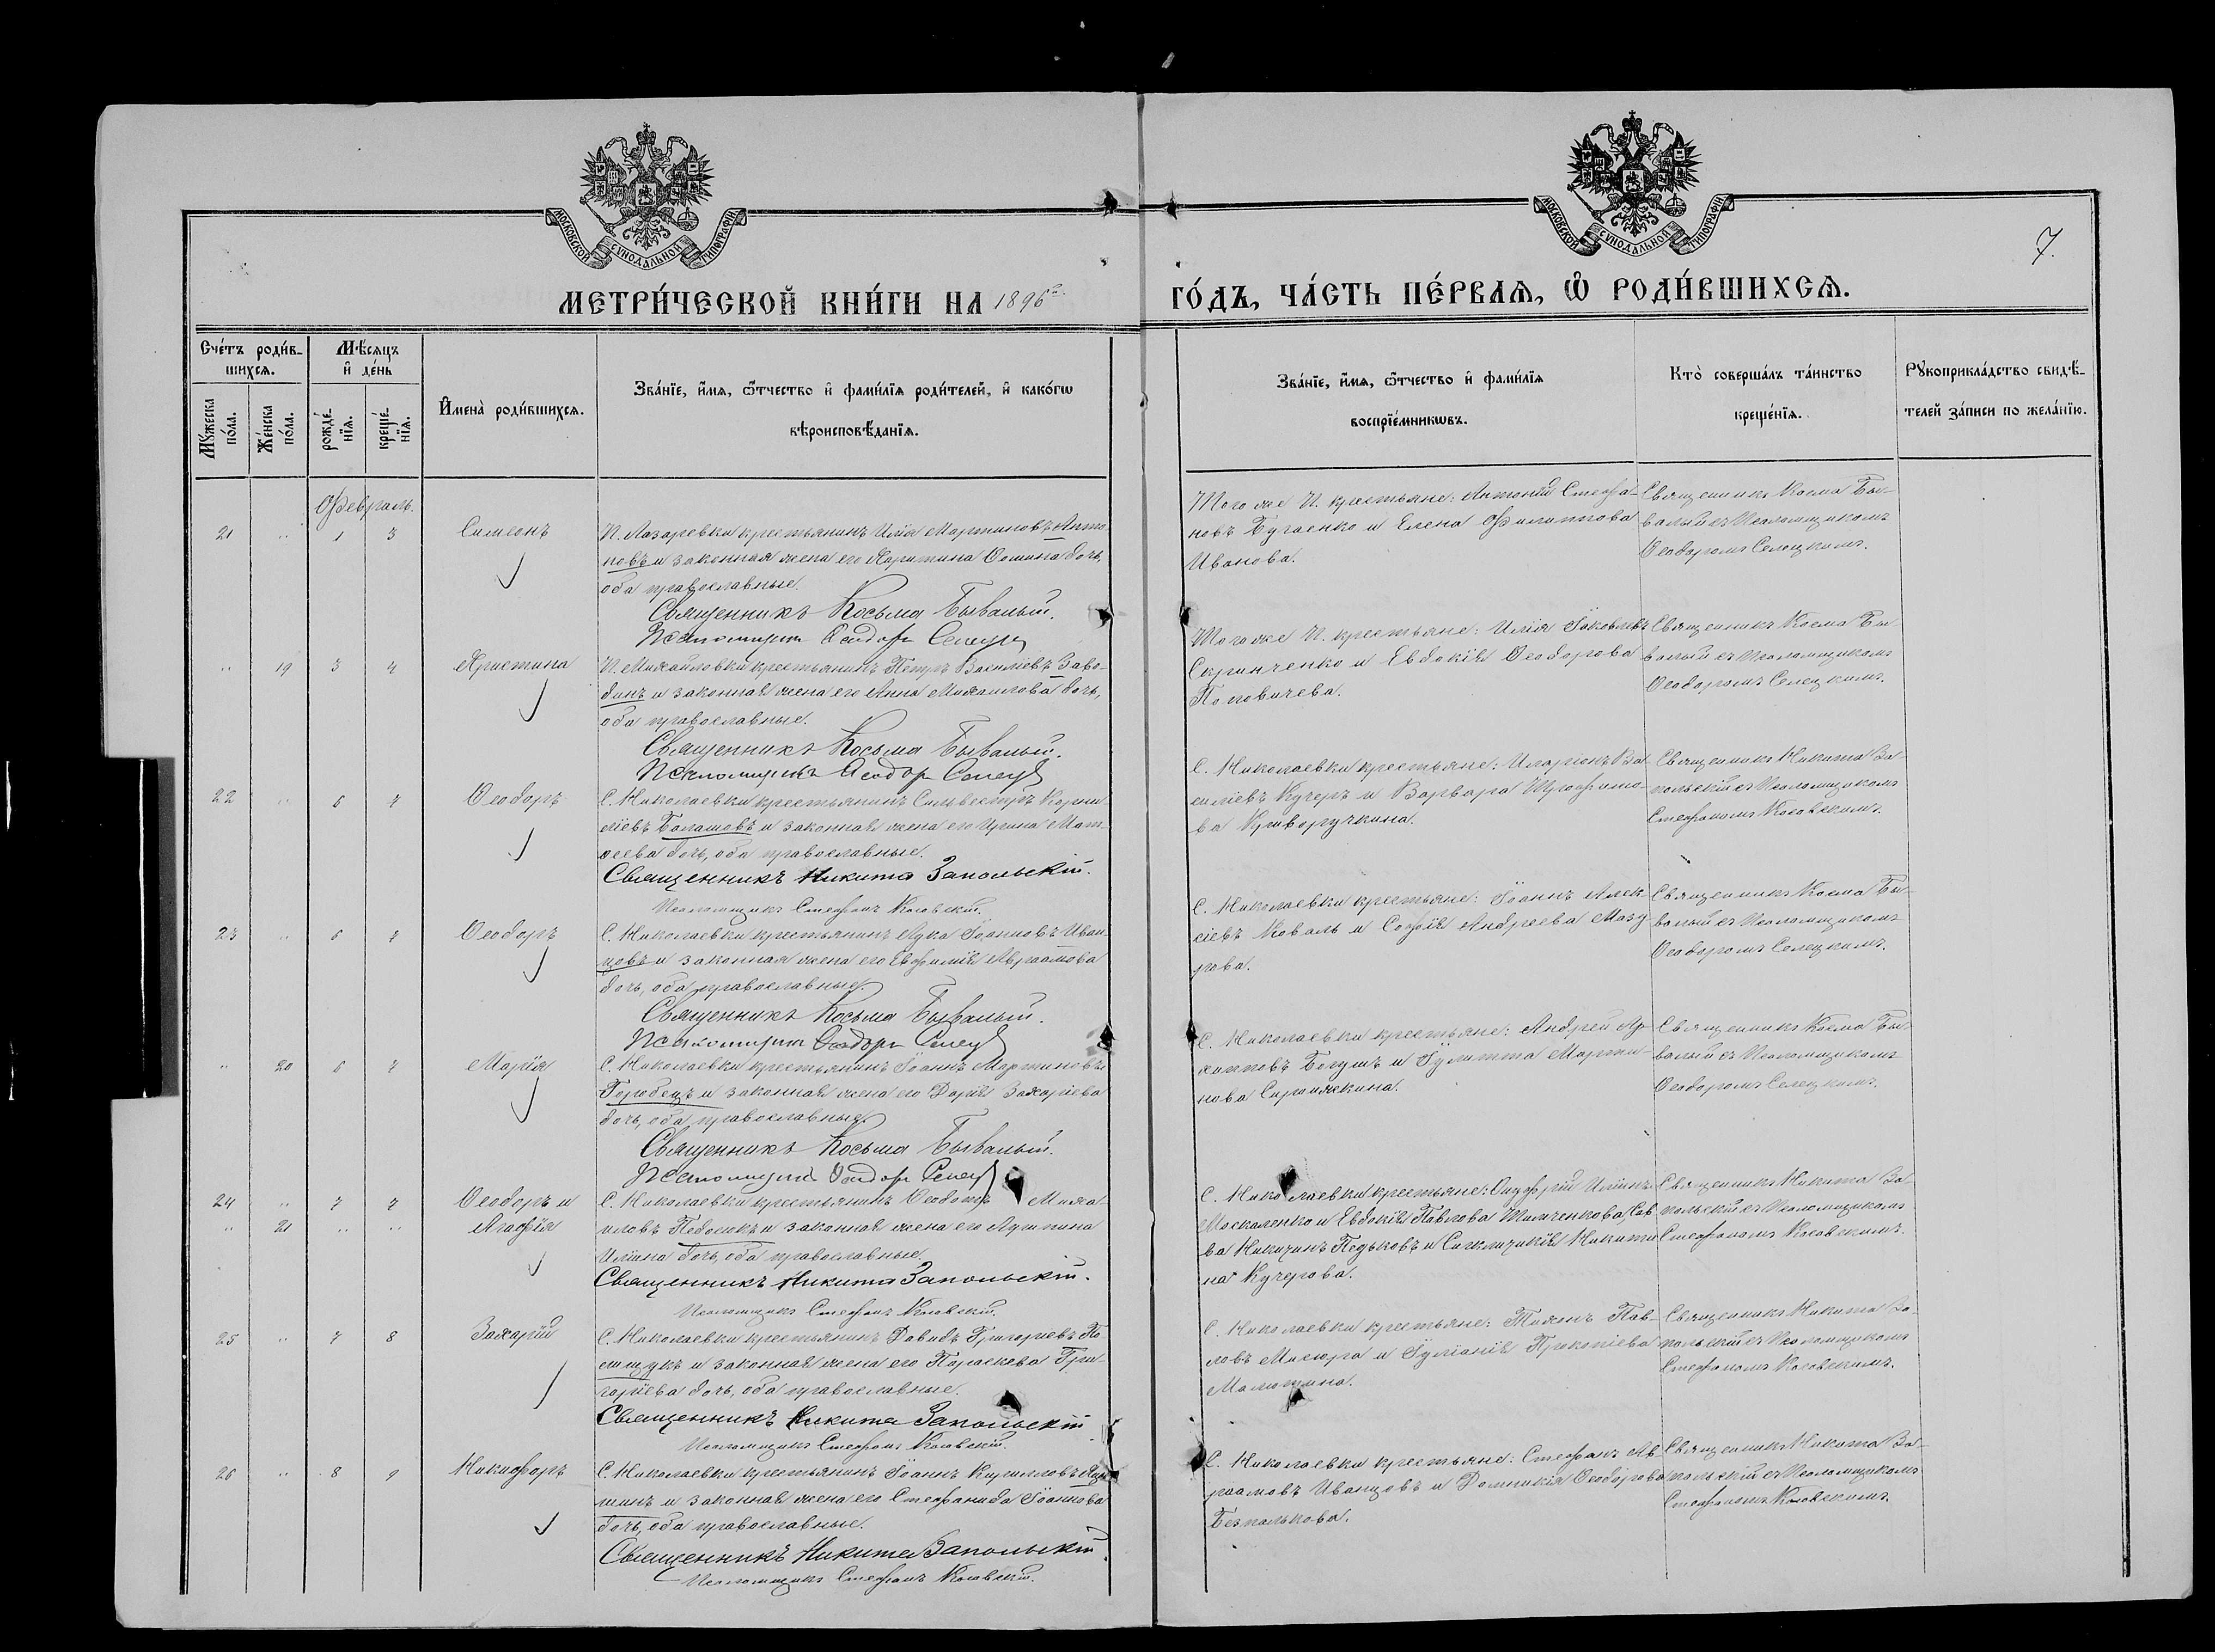 МОСКОВСКОЙ СѴНОДАЛЬНОЙ ТИПОГРАФІИ
МОСКОВСКОЙ СѴНОДАЛЬНОЙ ТИПОГРАФІИ
7.
МЕТРИ́ЧЕСКОЙ КНИ́ГИ НА 1896 г. ГО́ДЪ, ЧА́СТЬ ПЕ́РВАѦ, Ѡ РОДИ́ВШИХСѦ.
Сче́тъ роди́в-
шихсѧ.
Мѣ́сѧцъ
и҆ де́нь
Мꙋ́жеска по́ла.
Же́нска по́ла.
рожде́-
нїѧ.
креще́-
нїѧ.
И҆мена̀ роди́вшихсѧ.
Зва́нїе, и҆́мѧ, ѻ҆́тчество и҆ фами́лїѧ роди́телей, и҆ како́гѡ
вѣроисповѣ́данїѧ.
Зва́нїе, и҆́мѧ, ѻ҆́тчество и҆ фами́лїѧ
воспрїе́мникѡвъ.
Кто̀ соверша́лъ та́инство
креще́нїѧ.
Рꙋкоприкла́дство свидѣ́-
телей за́писи по жела́нїю.
Февраль.
21 " 1 3 Симеонъ
П. Лазаревки крестьянинъ Илія Мартиновъ Анто-
новъ и законная жена его Харитина Ѳомина дочь,
оба православные.
Священникъ Косьма Бывалый.
Псаломщикъ Ѳеодоръ Селецкій
Того же П. крестьяне: Антоній Стефа-
новъ Бугаенко и Елена Филиппова
Иванова.
Священникъ Косма Бы-
валый съ Псаломщикомъ
Ѳеодоромъ Селецкимъ.
" 19 3 4 Христина
П. Михайловки крестьянинъ Петръ Василіевъ Заво-
динъ и законная жена его Анна Михаилова дочь,
оба православные.
Священникъ Косьма Бывалый.
Псаломщикъ Ѳеодоръ Селецкій
Того же П. крестьяне: Илія Іаковлевъ
Скрипченко и Евдокія Ѳеодорова
Поповичева.
Священникъ Косма Бы-
валый съ Псаломщикомъ
Ѳеодоромъ Селецкимъ.
22 " 6 7 Ѳеодоръ
С. Николаевки крестьянинъ Сильвестръ Корни-
ліевъ Балашовъ и законная жена его Ирина Мат-
ѳеева дочь, оба православные.
Священникъ Никита Запольскій.
Псаломщикъ Стефанъ Косовскій.
С. Николаевки крестьяне: Иларіонъ Ва-
силіевъ Кучеръ и Варвара Трофимо-
ва Криворучкина.
Священникъ Никита За-
польскій съ Псаломщикомъ
Стефаномъ Косовскимъ.
23 " 6 7 Ѳеодоръ
С. Николаевки крестьянинъ Лука Іоанновъ Иван-
цовъ и законная жена его Евфимія Авраамова
дочь, оба православные.
Священникъ Косьма Бывалый.
Псаломщикъ Ѳеодоръ Селецкій
С. Николаевки крестьяне: Іоаннъ Алек-
сіевъ Коваль и Софія Андреева Мазу-
рова.
Священникъ Косма Бы-
валый съ Псаломщикомъ
Ѳеодоромъ Селецкимъ.
" 20 6 7 Марія
С. Николаевки крестьянинъ Іоаннъ Мартиновъ
Горобецъ и законная жена его Дарія Захаріева
дочь, оба православные.
Священникъ Косьма Бывалый.
Псаломщикъ Ѳеодоръ Селецкій
С. Николаевки крестьяне: Андрей Ар-
хипповъ Богушъ и Іулитта Марти-
нова
Священникъ Косма Бы-
валый съ Псаломщикомъ
Ѳеодоромъ Селецкимъ.
24 " 7 7 Ѳеодоръ и
" 21 " " Агафія
С. Николаевки крестьянинъ Ѳеодотъ Миха-
иловъ и законная жена его Агрипина
Иліина дочь, оба православные.
Священникъ Никита Запольскій.
Псаломщикъ Стефанъ Косовскій.
С. Николаевки крестьяне: Онуфрій Иліинъ
Москаленко и Евдокія Павлова Сав-
ва Никитинъ Педьковъ и Синклитикія Никити-
на Кучерова.
Священникъ Никита За-
польскій съ Псаломщикомъ
Стефаномъ Косовскимъ.
25 " 7 8 Захарій
С. Николаевки крестьянинъ Давидъ Григоріевъ По-
лищукъ и законная жена его Параскева Гри-
горіева дочь, оба православные.
Священникъ Никита Запольскій
Псаломщикъ Стефанъ Косовскій.
С. Николаевки крестьяне: Тихонъ Пав-
ловъ Мисюра и Іуліанія Прокопіева
Малютина.
Священникъ Никита За-
польскій съ Псаломщикомъ
Стефаномъ Косовскимъ.
26 " 8 9 Никифоръ
С. Николаевки крестьянинъ Іоаннъ Кирилловъ
и законная жена его Стефанида Іоаннова
дочь, оба православные.
Священникъ Никита Запольскій.
Псаломщикъ Стефанъ Косовскій.
С. Николаевки крестьяне: Стефанъ Ав-
раамовъ Иванцовъ и Домникія Ѳеодорова
Безпалькова.
Священникъ Никита За-
польскій съ Псаломщикомъ
Стефаномъ Косовскимъ.